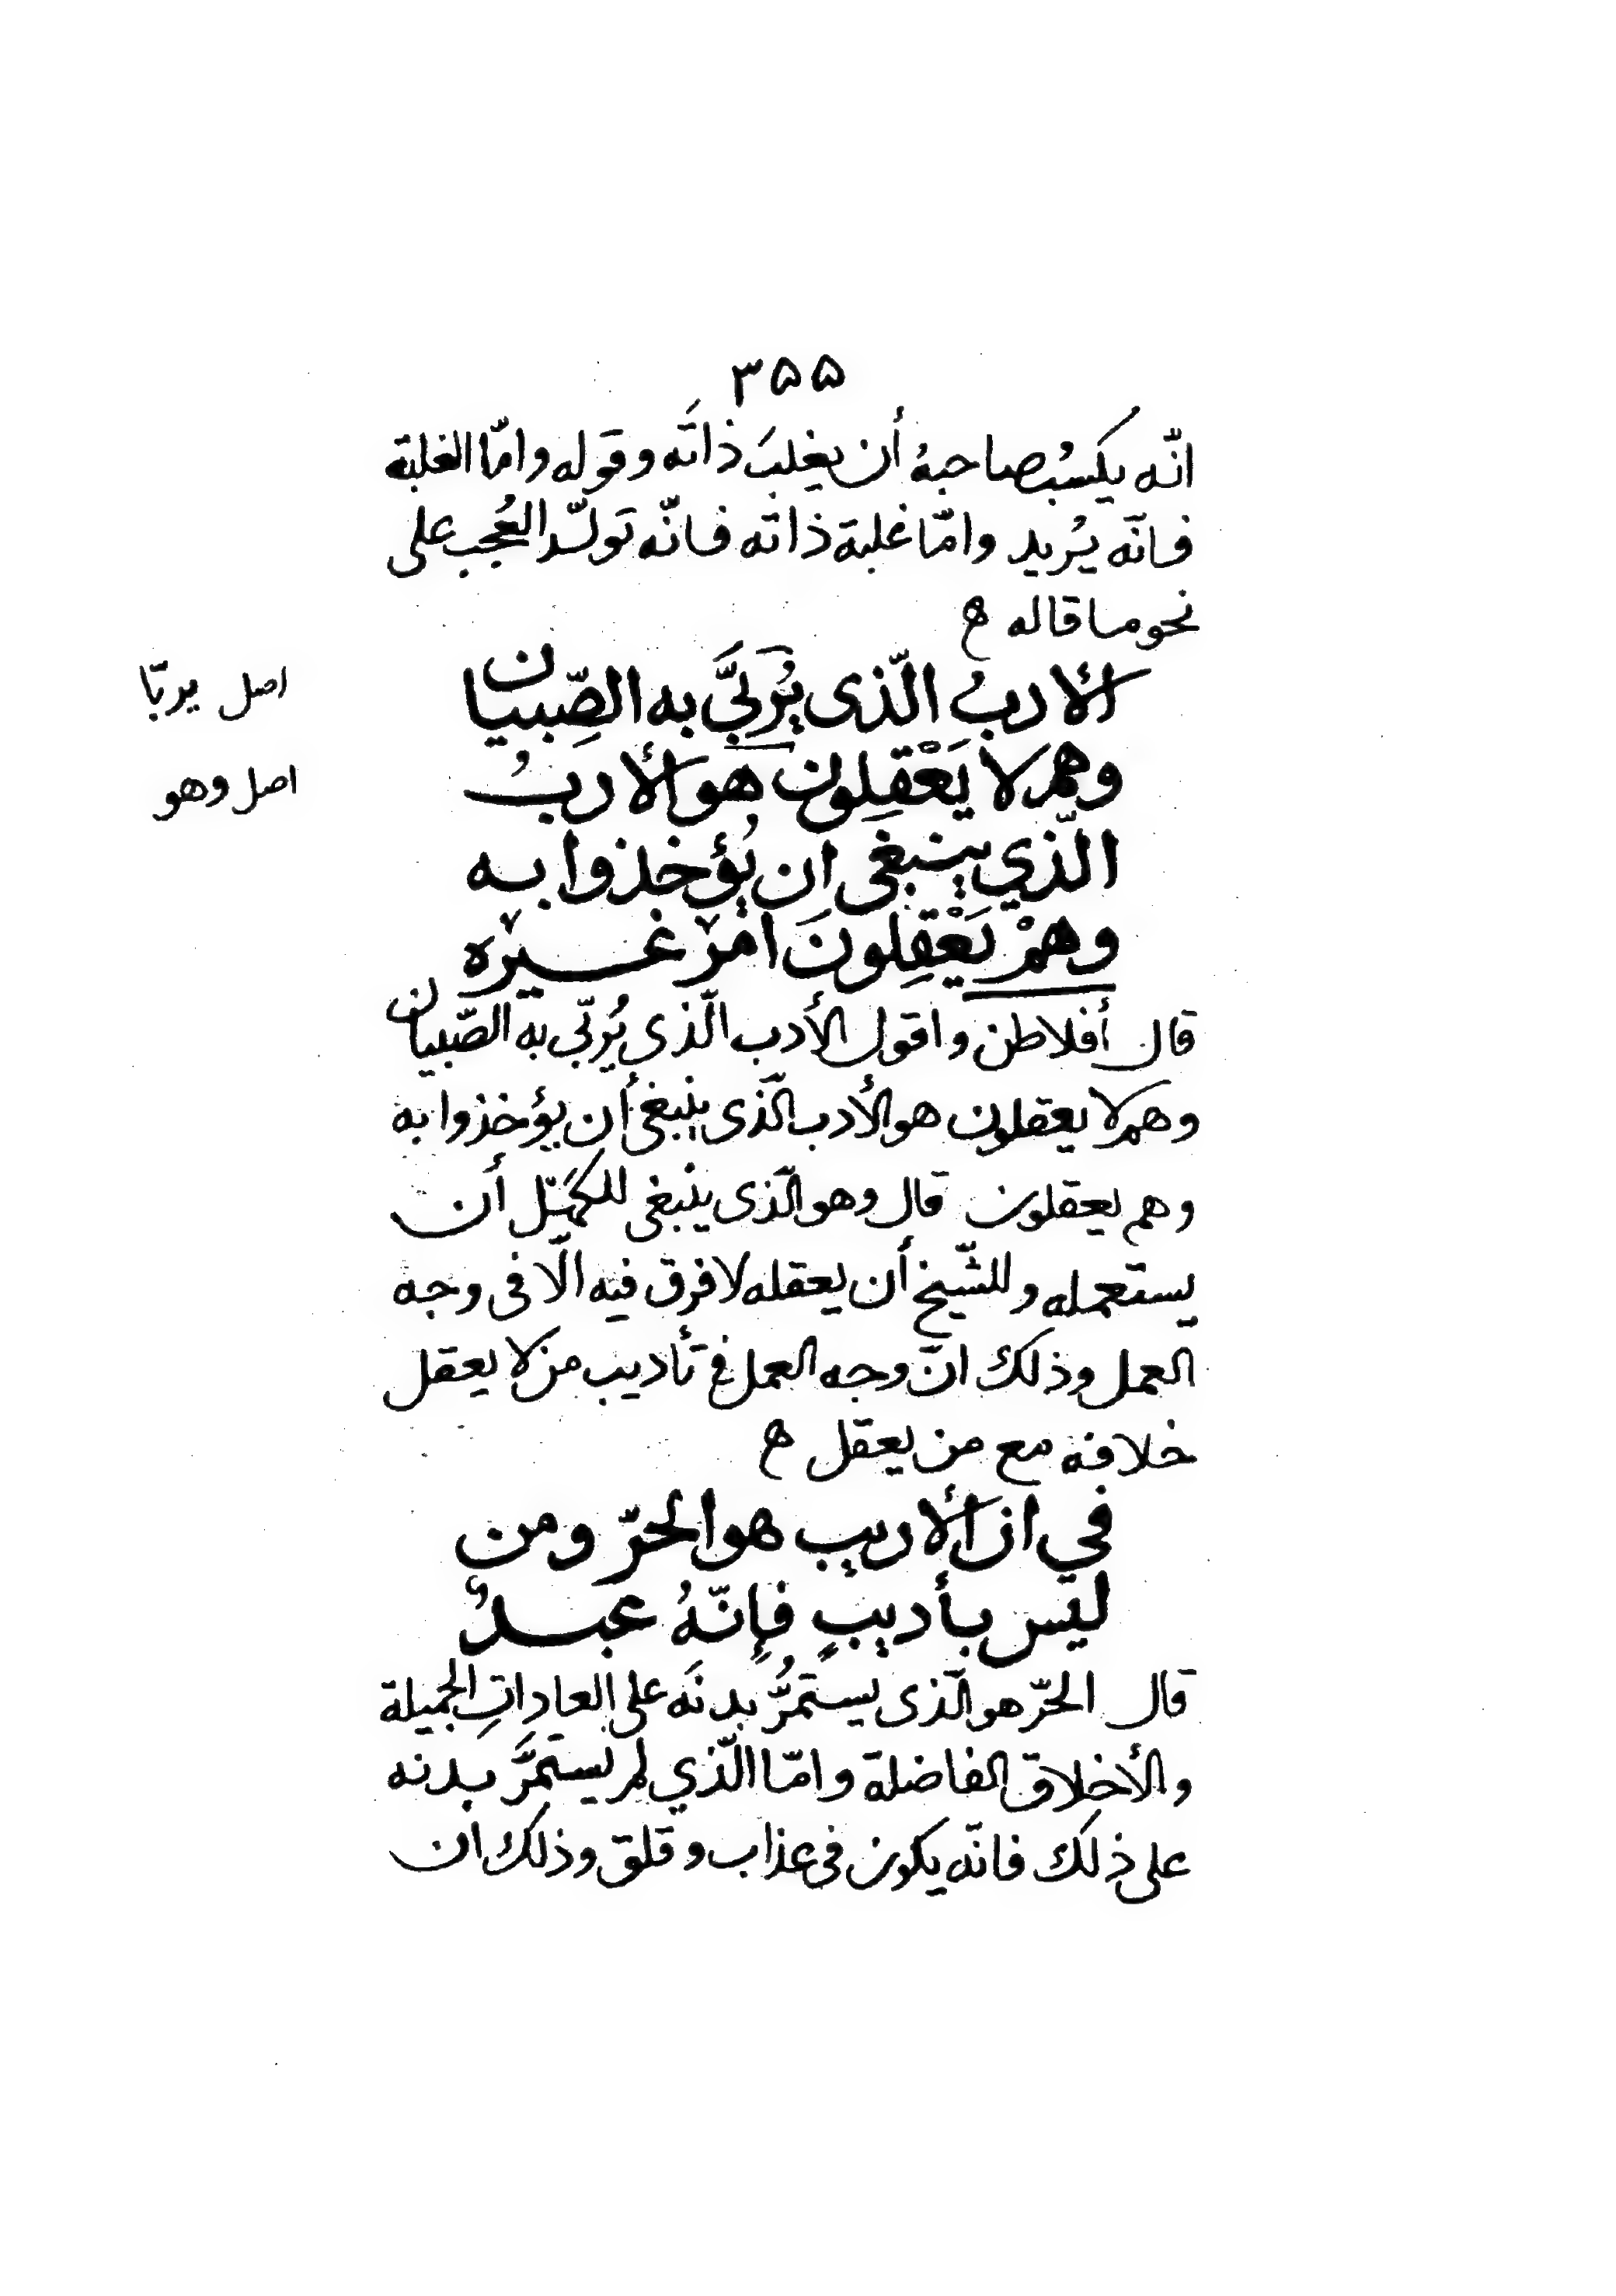 ۳۵۵
انّه یکسبُ صاحبهُ أن یغلبَ ذاتَه وقوله وامّا الغلبة
فانّه یُرید وامّا غلبة ذاته فانّه تولّد العُجب علی
نحو ما قاله ه
الأدبُ الّذی یُرَبَّیَ به الصِّبیان
اصل یربّا
وهم لا یَعْقِلون هو الأدبُ
اصل وهو
الّذي ینبغی ان یُؤخذوا به
وهمْ یَعْقِلونَ امْرَ غیْره
قال أفلاطن واقول الأدب الّذی یُربّی به الصّبیان
وهم لا یعقلون هو الأدب الّذی ینبغی أن یؤخذوا به
وهم یعقلون قال وهو الّذی ینبغی للکهَّل أن
یستعمله وللشّیخ أن یعقله لا فرق فیه الّا فی وجه
العمل وذلك انّ وجه العمل فی تأدیب من لا یعقل
خلافه مع من یعقل ه
في ان الأدیب هو الحرّ ومن
لیس بأدیبٍ فإنّهُ عبدٌ
قال الحرّ هو الّذی یستمرُّ بدنَه علی العاداتِ الجمیلة
والأخلاق الفاضلة وامّا الّذي لم یستمرَّ بدنه
علی ذلك فانّه یکون فی عذاب وقلق وذلك ان